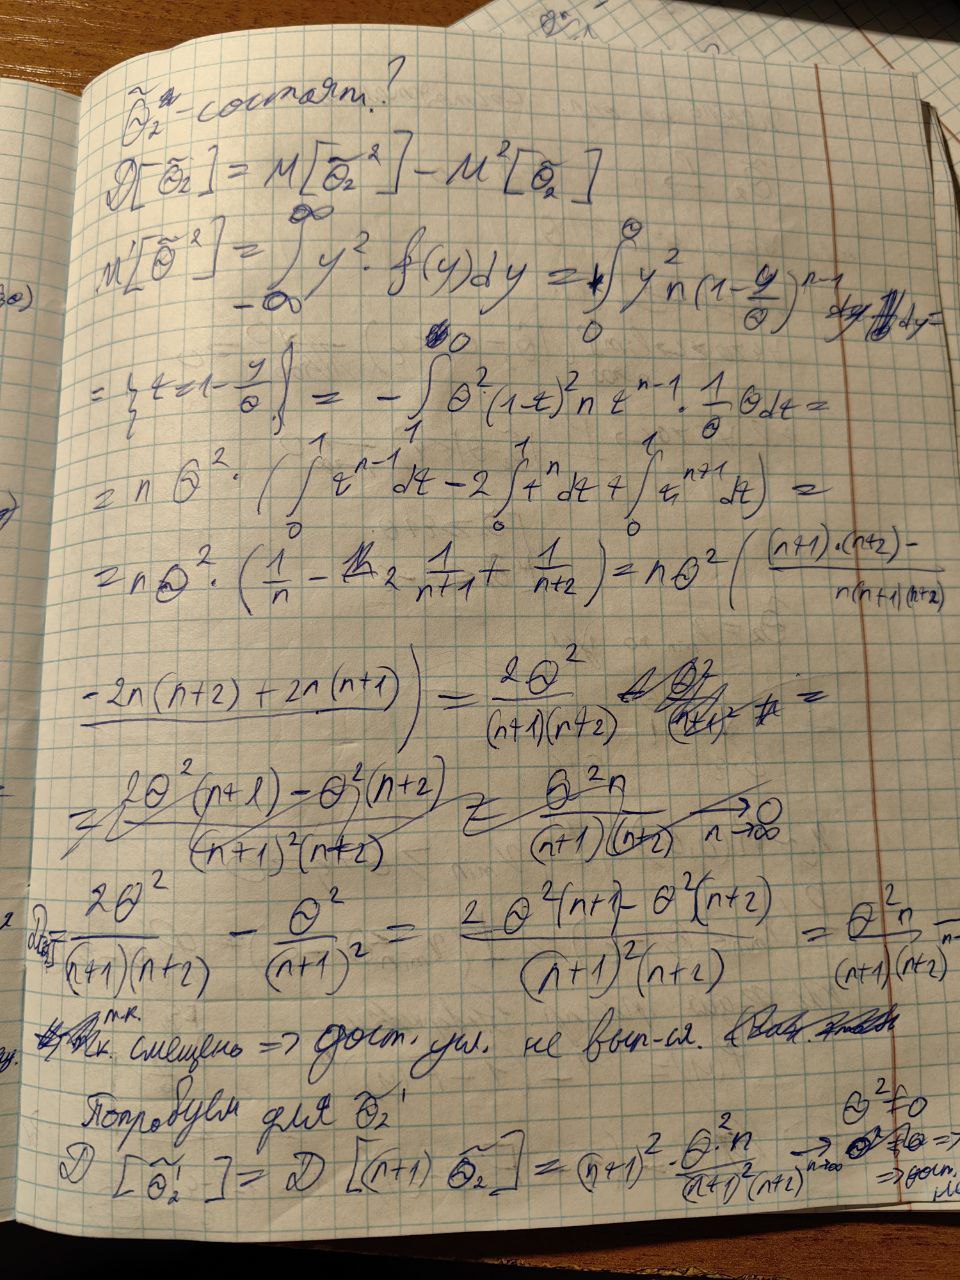 θ̃₂ - состоят.?
Д[θ̃₂] = М[θ̃₂²] - М²[θ̃₂]
М[θ̃²] = ∫_{-∞}^{∞} y² · f(y)dy = ∫_0^θ y² n (1 - y/θ)^{n-1} dy =
= {t = 1 - y/θ} = - ∫_1^0 θ² (1-t)² n t^{n-1} · 1/θ θ dt =
= n θ² · (∫_0^1 t^{n-1} dt - 2 ∫_0^1 t^n dt + ∫_0^1 t^{n+1} dt) =
= nθ² · (1/n - 2 1/(n+1) + 1/(n+2)) = nθ² ( (n+1)·(n+2) - / n(n+1)(n+2)
-2n(n+2) + 2n(n+1) ) = 2θ²/((n+1)(n+2)) =
= (2θ²(n+1) - θ²(n+2))/((n+1)²(n+2)) = θ²n/((n+1)(n+2)) →_{n→∞} 0
= 2θ²/((n+1)(n+2)) - θ²/(n+1)² = (2θ²(n+1) - θ²(n+2))/((n+1)²(n+2)) = θ²n/((n+1)(n+2))
т.к. смещень => дост. усл. не вып-ся.
Попробуем для θ̃₂'
Д[θ̃₂'] = Д[(n+1) θ̃₂] = (n+1)² · θ²n/((n+1)²(n+2)) →_{n→∞} θ² ≠ 0
=> дост.